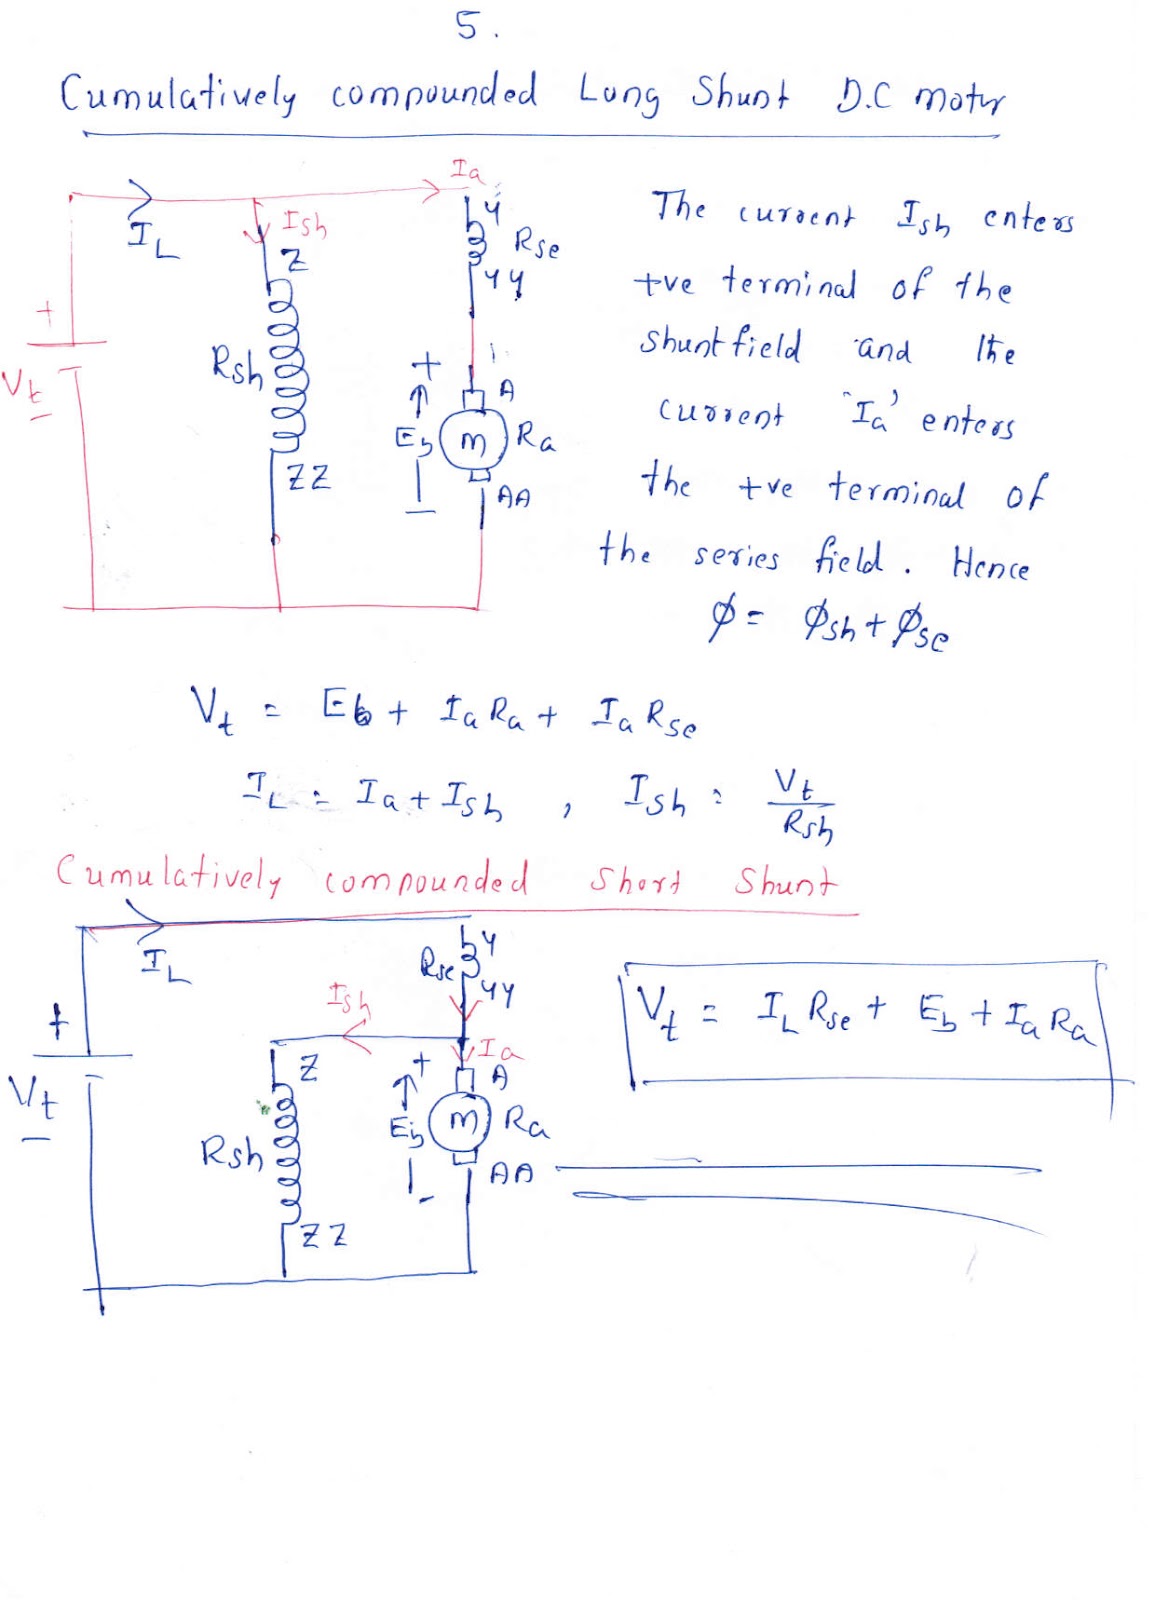 5.
Cumulatively compounded Long Shunt D.C motor
Ia
IL
Ish
Z
Y
Rse
YY
+
Vt
−
Rsh
ZZ
+
Eb
−
A
M
Ra
AA
The current Ish enters
+ve terminal of the
shunt field and the
current 'Ia' enters
the +ve terminal of
the series field. Hence
Ø = Øsh + Øse
Vt = Eb + Ia Ra + Ia Rse
IL = Ia + Ish , Ish = Vt / Rsh
Cumulatively compounded Short Shunt
IL
Rse
Y
YY
Ish
Ia
+
Vt
−
Z
Rsh
ZZ
+
Eb
−
A
M
Ra
AA
Vt = IL Rse + Eb + Ia Ra